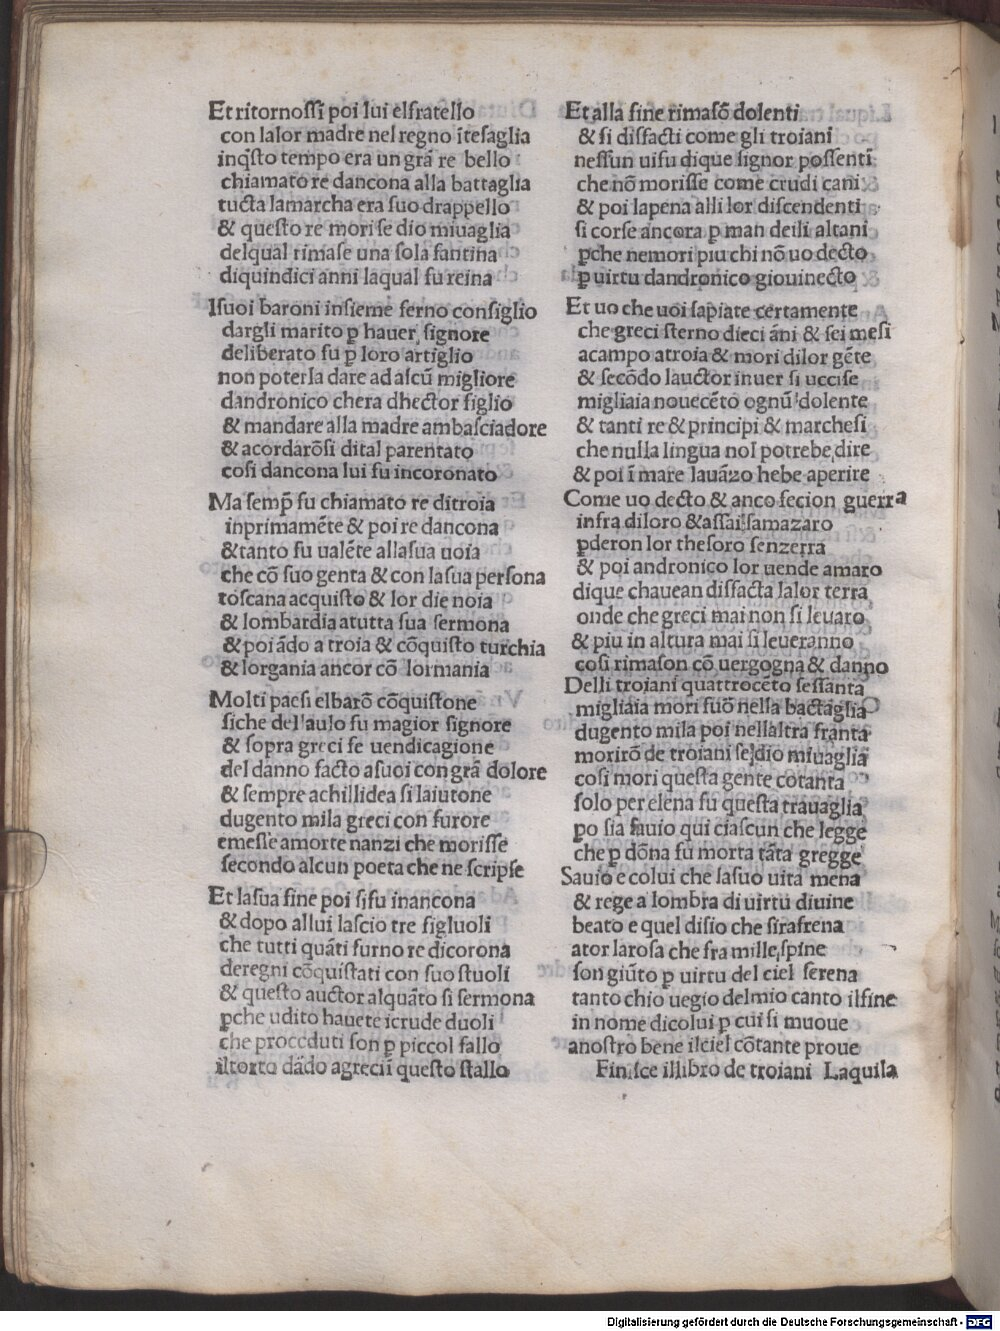 Et ritornossi poi lui elfratello
con lalor madre nel regno ītesaglia
inq̄sto tempo era un grā re bello
chiamato re dancona alla battaglia
tucta lamarcha era suo drappello
& questo re mori se dio miuaglia
delqual rimase una sola fantina
diquindici anni laqual fu reina
Isuoi baroni insieme ferno consiglio
dargli marito ꝑ hauer signore
deliberato fu ꝑ loro artiglio
non poterla dare ad alcū migliore
dandronico chera dhector figlio
& mandare alla madre ambasciadore
& acordarōsi dital parentato
cosi dancona lui fu incoronato
Ma semp̄ fu chiamato re ditroia
inprimamēte & poi re dancona
& tanto fu ualēte allasua uoia
che cō suo genta & con lasua persona
toscana acquisto & lor die noia
& lombardia atutta sua sermona
& poi ādo a troia & cōquisto turchia
& lorgania ancor cō lormania
Molti paesi elbarō cōquistone
siche del'aulo fu magior signore
& sopra greci fe uendicagione
del danno facto asuoi con grā dolore
& sempre achillidea si laiutone
dugento mila greci con furore
emesse amorte nanzi che morisse
secondo alcun poeta che ne scripse
Et lasua fine poi sifu inancona
& dopo allui lascio tre figluoli
che tutti quāti furno re dicorona
deregni cōquistati con suo stuoli
& questo auctor alquāto si sermona
ꝑche udito hauete icrude duoli
che proceduti son ꝑ piccol fallo
iltorto dādo agreci ī questo stallo
Et alla fine rimasō dolenti
& si disfacti come gli troiani
nessun uisu dique signor possenti
che nō morisse come crudi cani
& poi lapena alli lor discendenti
si corse ancora ꝑ man deili altani
ꝑche nemori piu chi nō uo decto
ꝑ uirtu dandronico giouinecto
Et uo che uoi sapiate certamente
che greci sterno dieci āni & sei mesi
acampo atroia & mori dilor gēte
& secōdo lauctor inuer si uccise
migliaia nouecēto ognū dolente
& tanti re & principi & marchesi
che nulla lingua nol potrebe dire
& poi ī mare lauāzo hebe aperire
Come uo decto & anco fecion guerra
infra diloro & assai samazaro
ꝑderon lor thesoro senzerra
& poi andronico lor uende amaro
dique chauean disfacta lalor terra
onde che greci mai non si leuaro
& piu in altura mai si leueranno
cosi rimason cō uergogna & danno
Delli troiani quattrocēto sessanta
migliaia mori fuō nella bactaglia
dugento mila poi nellaltra franta
morirō de troiani se dio miuaglia
cosi mori questa gente cotanta
solo per elena fu questa trauaglia
po sia sauio qui ciascun che legge
che ꝑ dōna fu morta tāta gregge
Sauio e colui che lasuo uita mena
& rege a lombra di uirtu diuine
beato e quel disio che sirafrena
a tor larosa che fra mille spine
son giūto ꝑ uirtu del ciel serena
tanto chio uegio delmio canto ilfine
in nome dicolui ꝑ cui si muoue
anostro bene ilciel cōtante proue
Finisce illibro de troiani Laquila
Digitalisierung gefördert durch die Deutsche Forschungsgemeinschaft - DFG